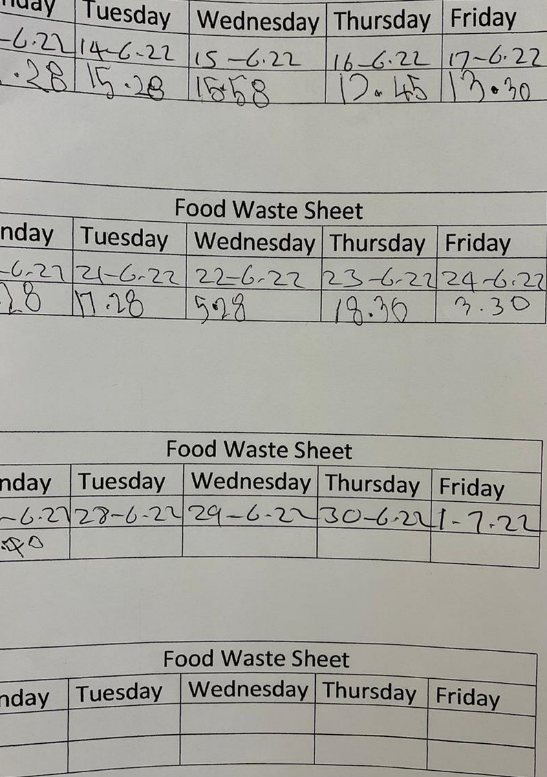 Tuesday Wednesday Thursday Friday
-6.22 14-6-22 15-6.22 16-6.22 17-6.22
.28 15.28 15.58 12.45 13.30
Food Waste Sheet
nday Tuesday Wednesday Thursday Friday
-6.22 21-6-22 22-6-22 23-6-22 24-6.22
28 17.28 5.28 18.30 3.30
Food Waste Sheet
nday Tuesday Wednesday Thursday Friday
-6.22 28-6-22 29-6-22 30-6.22 1-7.22
Food Waste Sheet
nday Tuesday Wednesday Thursday Friday